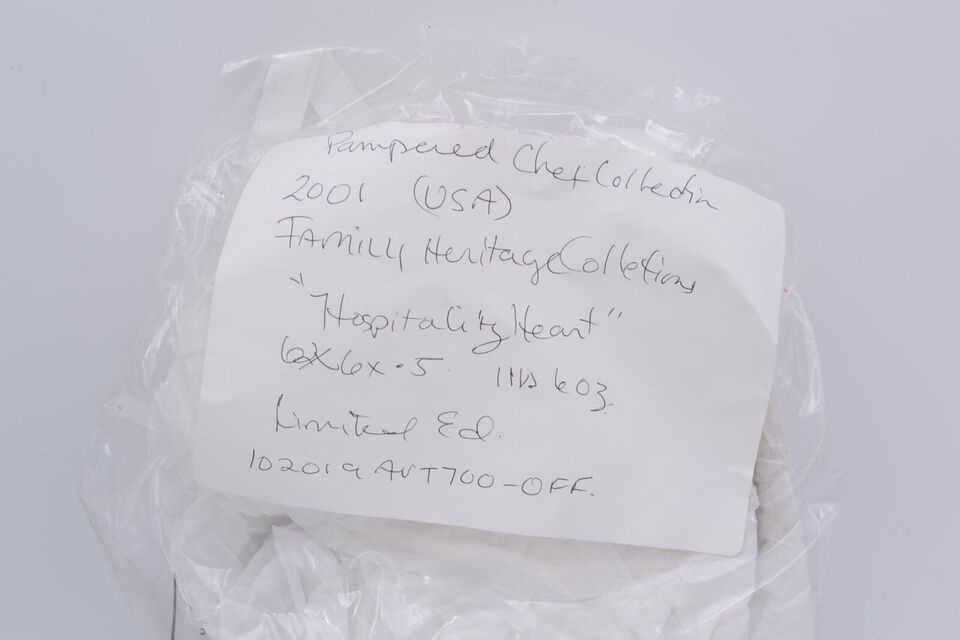 Pampered Chef Collection
2001 (USA)
FAMILY Heritage Collections
"Hospitality Heart"
6x6x.5 1lb 6oz.
Limited Ed.
102019 AVT700-OFF.